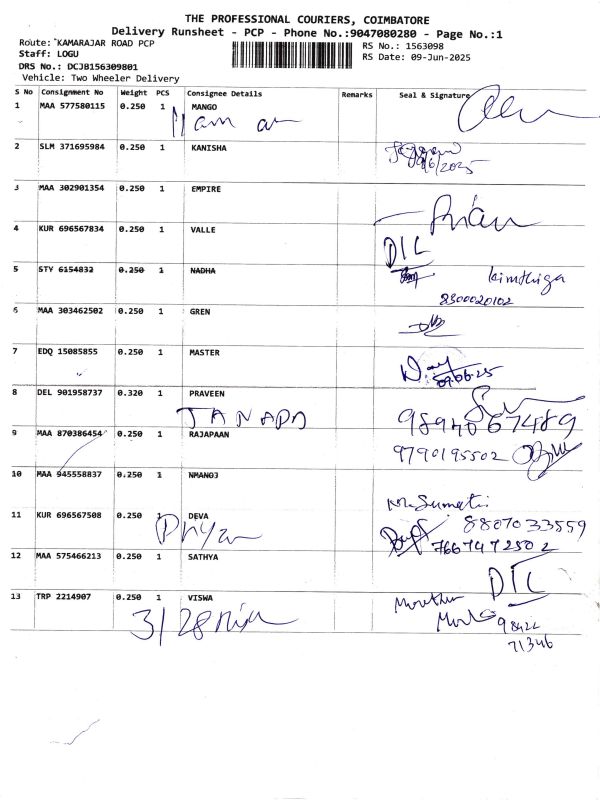 THE PROFESSIONAL COURIERS, COIMBATORE
Delivery Runsheet - PCP - Phone No.:9047080280 - Page No.:1
Route: KAMARAJAR ROAD PCP
RS No.: 1563098
Staff: LOGU
RS Date: 09-Jun-2025
DRS No.: DCJB156309801
Vehicle: Two Wheeler Delivery
S No Consignment No Weight PCS Consignee Details Remarks Seal & Signature
1 MAA 577580115 0.250 1 MANGO
2 SLM 371695984 0.250 1 KANISHA
9/6/2025
3 MAA 302901354 0.250 1 EMPIRE
4 KUR 696567834 0.250 1 VALLE
DIL
5 STY 6154832 0.250 1 NADHA
kirthiga
8300020102
6 MAA 303462502 0.250 1 GREN
7 EDQ 15085855 0.250 1 MASTER
09.06.25
8 DEL 901958737 0.320 1 PRAVEEN
JANARD
9894067489
9 MAA 870386454 0.250 1 RAJAPAAN
9790195502
10 MAA 945558837 0.250 1 NMANOJ
Sumati
11 KUR 696567508 0.250 1 DEVA
Priyan
8807033559
7667472502
12 MAA 575466213 0.250 1 SATHYA
DIL
13 TRP 2214907 0.250 1 VISWA
3/28
98422
71346